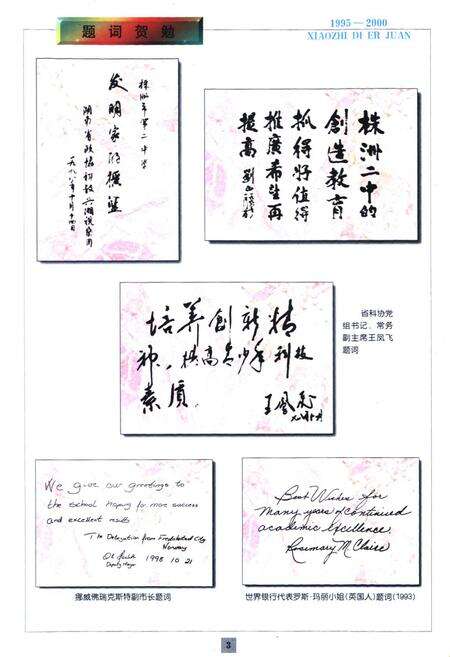 题词贺勉
1995—2000
XIAOZHI DI ER JUAN
株洲市第二中学
发明家的摇篮
株洲二中的
创造教育
抓得好值得
推广希望再
提高
省科协党
组书记、常务
副主席王凤飞
题词
培养创新精
神，提高青少年科技
素质。
王凤飞
We give our greetings to
the school Hoping for more success
and excellent results
The Delegation from Fredrikstad City
Norway
Deputy Mayor
1998 10 21
Best Wishes for
many years of continued
academic excellence.
Rosemary M. Claire
挪威佛瑞克斯特副市长题词
世界银行代表罗斯·玛丽小姐(英国人)题词(1993)
3